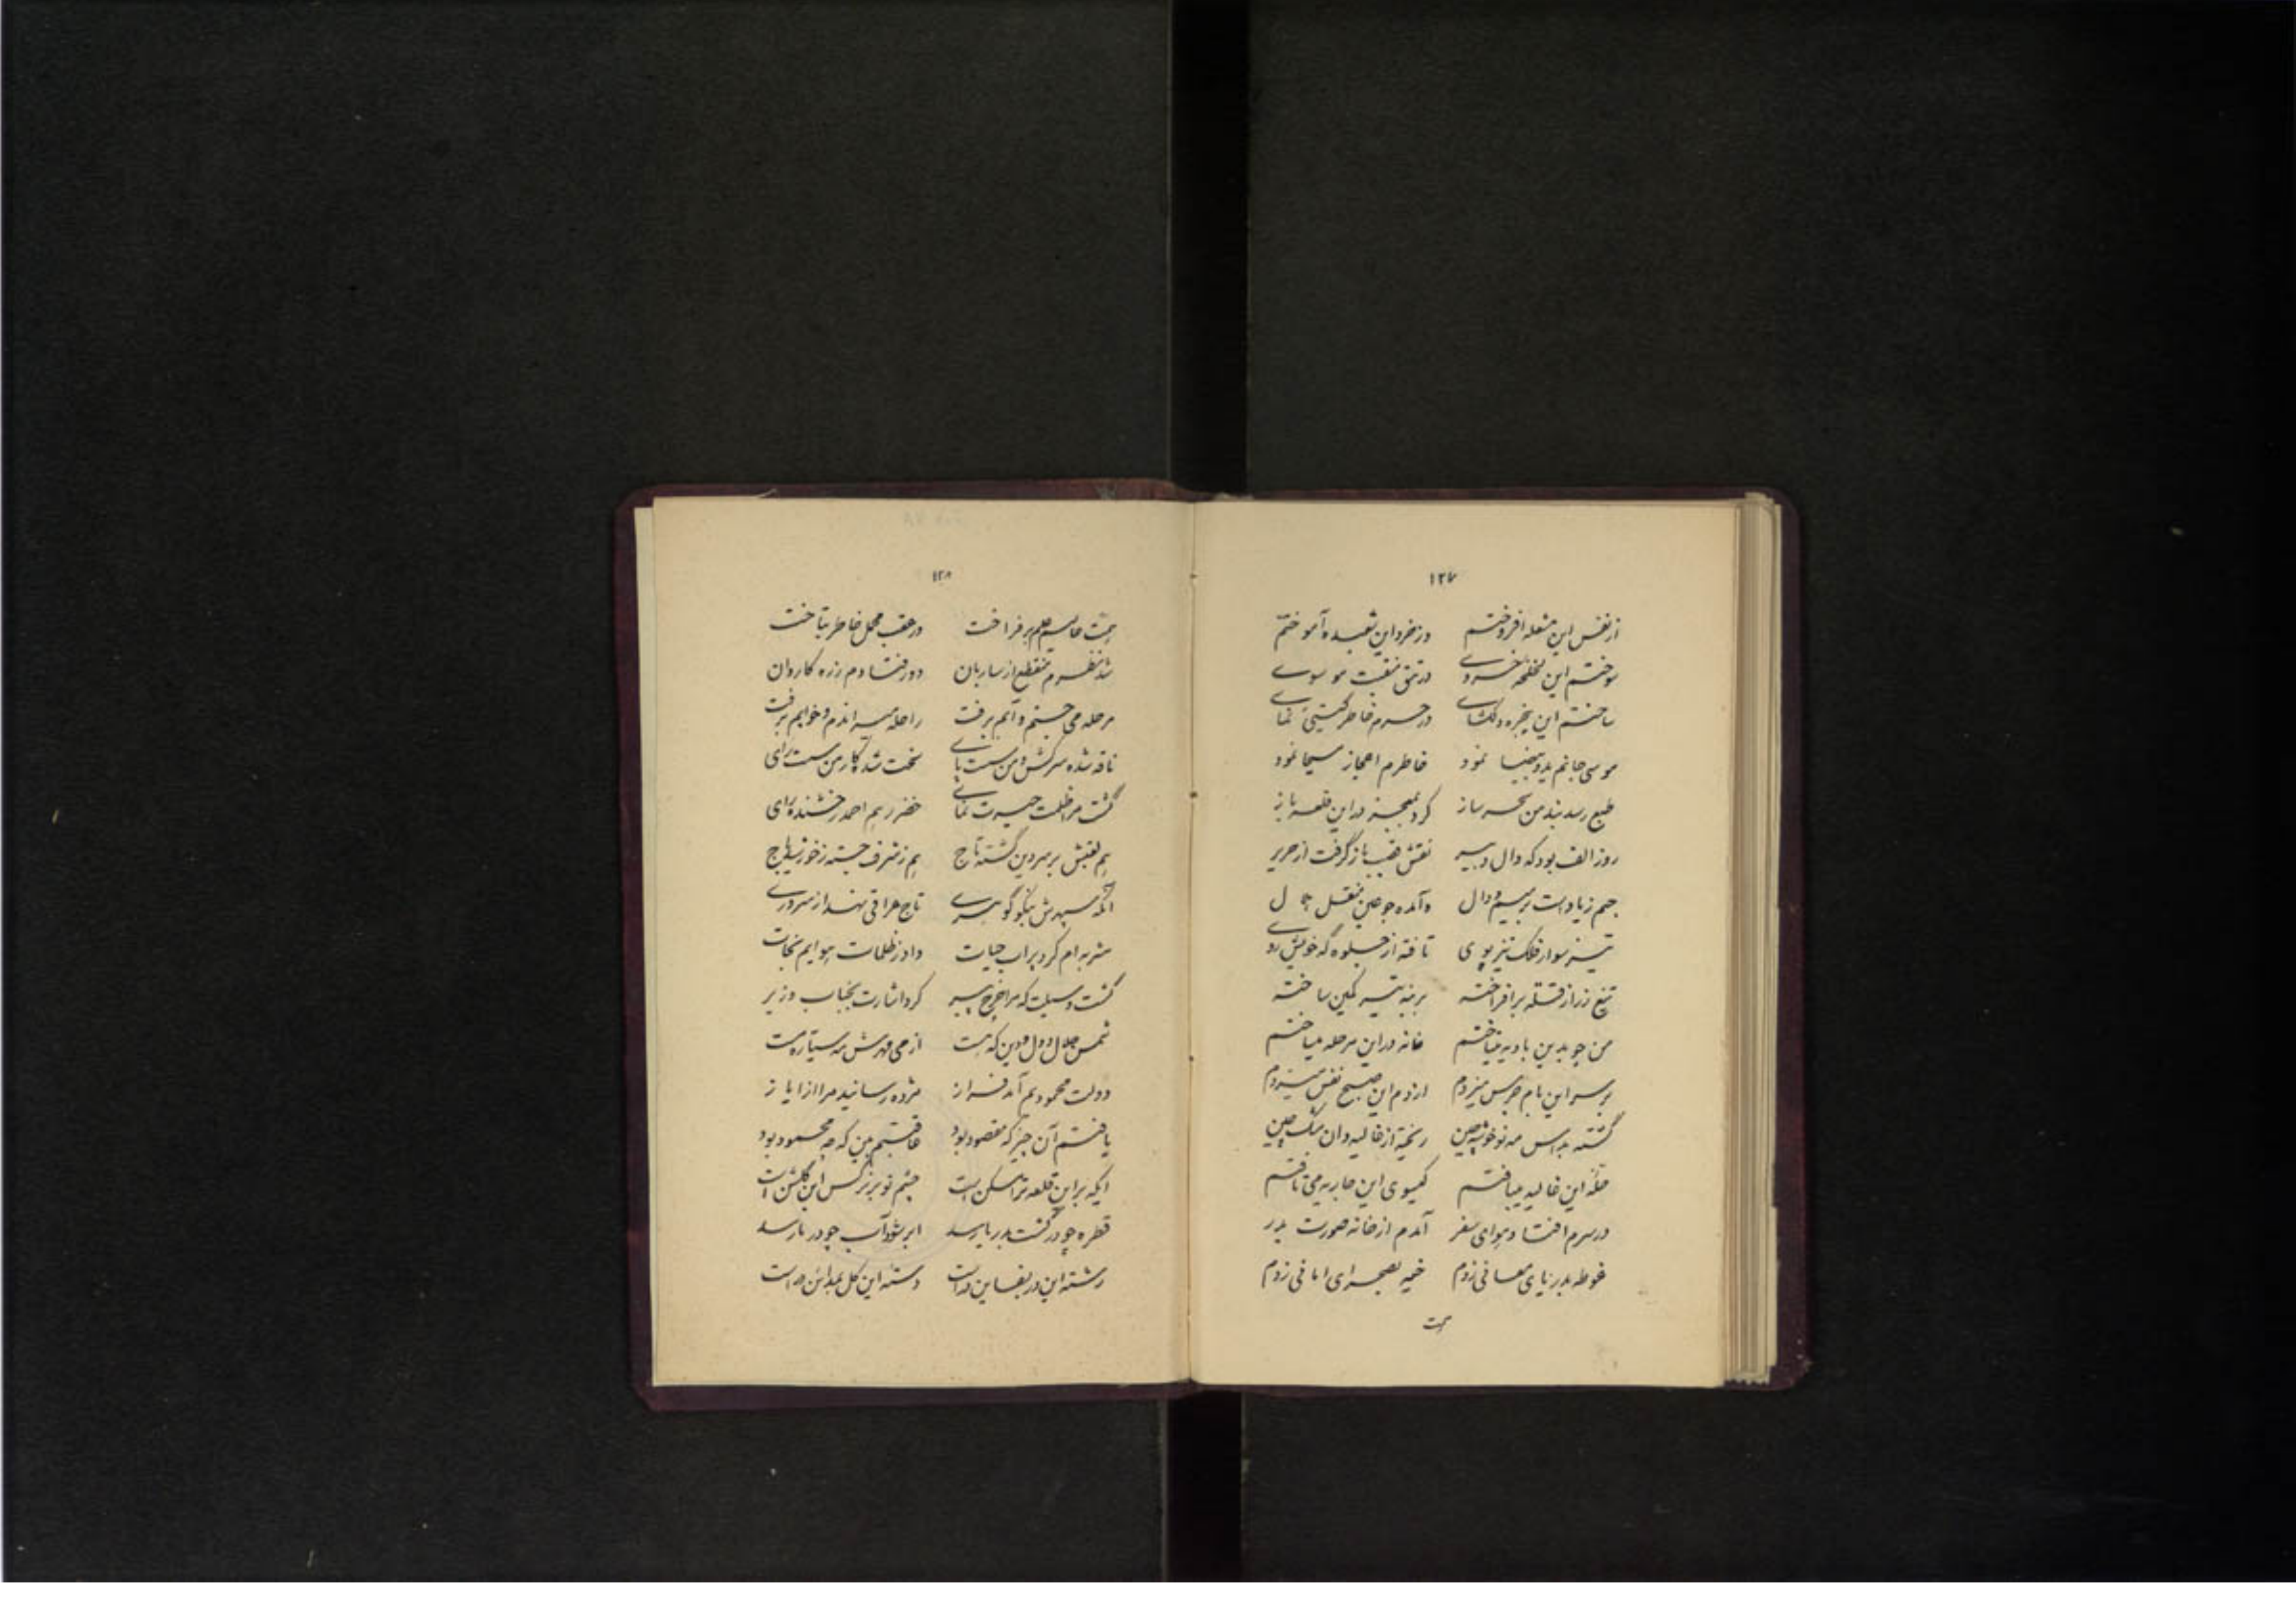 ۱۲۷
از نفس این مشعله افروختم وز خرد این شعبده آموختم
سوختم این لخلخه خسروی در تتق منقبت موسوی
ساختم این پنجره دلگشای در حرم خاطر گیتی نمای
موسی جانم ید و بیضا نمود خاطرم اعجاز مسیحا نمود
طبع رسد بند من سحر ساز کرد بمعجز در این قلعه باز
روز الف بود که دال دبیر نقش قصب باز گرفت از حریر
جیم زیادت بر سیم و دال وآمده جوجین منقل
تیز سوار فلک تیز پوی تافته از جلوه گه خویش روی
تیغ زر از قلّه برافراخته بر بنه تیر کمین ساخته
من چو بدین بادیه میتاختم خانه در این مرحله میساختم
بر سر این بام جرس میزدم از دم این صبح نفس میزدم
گشته بداس مه نو خوشه چین ریخته از غالیه دان مشک چین
حلّه این غالیه میبافتم گیسوی این جاریه می تافتم
در سرم افتاد هوای سفر آمدم از خانه صورت بدر
غوطه بدریای معانی زدم خیمه بصحرای امانی زدم
همت
۱۲۸
همت حالیم علم برفراخت در عقب محمل خاطر بتاخت
شد نظرم منقطع از ساربان دور فتادم ز ره کاروان
مرحله می جستم و آبم برفت راحله میراندم و خوابم برفت
ناقه شده سرکش و من سست پای سخت شد کار من سست رای
گشت مرا ظلمت حیرت نمای خضر رهم احمد رخشنده رای
هم لقبش بر سر دین گشته تاج هم ز شرف جسته ز خور تاج
آنکه سپهرش بنکو گوهری تاج عراقی نهد از سروری
شربه ام کرد پر اب حیات داد ز ظلمات هوایم نجات
گشت وسیلت که مرا چرخ پیر کرد اشارت بجناب وزیر
شمس جلال دول و دین که هست از می مهرش مه سیاره مست
دولت محمودیم آمد فراز مژده رسانید مرا از ایاز
یافتم آن چیز که مقصود بود عاقبتم بین که چه محمود بود
ایکه بر این قلعه ترا مسکن است چشم تو بر نرگس این گلشن است
قطره چو در گشت بدریا رسد ابر شود آب چو در رسد
رشته این در بفساین در است دسته این گل بمداین در است